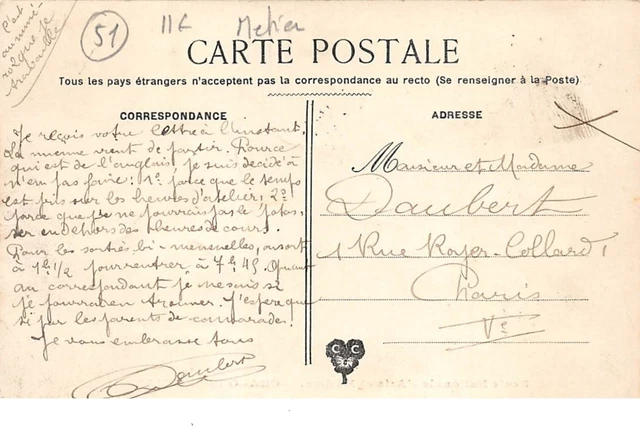 c'est
au numé-
ro que je
travaille
51
11 €
Metier
CARTE POSTALE
Tous les pays étrangers n'acceptent pas la correspondance au recto (Se renseigner à la Poste)
CORRESPONDANCE
Je reçois votre lettre à l'instant.
La mienne vient de partir. Pource
qui est de l'anglais, je suis décidé à
n'en pas faire: 1º parce que le temps
est pris sur les heures d'atelier, 2º
parce que je ne pourrais pas le
en dehors des heures de cours.
Pour les sorties bi-mensuelles, on sort
à 1h 1/2 pour rentrer à 7h 45. Quant
au correspondant je ne sais si
je pourrai en trouver. J'espère que
si par les parents de camarades.
Je vous embrasse tous
Daubert
ADRESSE
Monsieur et Madame
Daubert
1 Rue Royer-Collard 1
Paris
Ve
C C